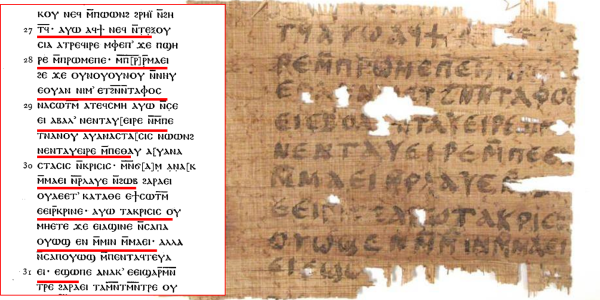 ⲕⲟⲩ ⲛⲉϥ ⲙ̄ⲡⲱⲱⲛϩ ϩⲣⲏⲓ̈ ⲛ̄ϩⲏ
27 ⲧϥ· ⲁⲩⲱ ⲁϥϯ ⲛⲉϥ ⲛ̄ⲧⲉⲝⲟⲩ
ⲥⲓⲁ ϫⲉ ⲡϣⲏ
28 ⲣⲉ ⲙ̄ⲡⲣⲱⲙⲉⲡⲉ· ⲙ̄ⲡ[ⲣ̄]ⲣ̄ⲙⲁⲉⲓ
ϩⲉ ϫⲉ ⲟⲩⲛⲟⲩⲟⲩⲛⲟⲩ ⲛ̄ⲛⲏⲩ
ⲉⲟⲩⲁⲛ ⲛⲓⲙ' ⲉⲧϩⲛ̄ⲛ̄ⲧⲁⲫⲟⲥ
29 ⲛⲁⲥⲱⲧⲙ̄ ⲁⲧⲉϥⲥⲙⲏ ⲁⲩⲱ ⲛ̄ⲥⲉ
ⲉⲓ ⲁⲃⲁⲗ' ⲛⲉⲛⲧⲁⲩ[ⲉⲓⲣⲉ ⲙ̄ⲡⲉ
ⲧⲛⲁⲛⲟⲩ ⲁⲩⲁⲛⲁⲥⲧⲁ[ⲥⲓⲥ ⲛ̄ⲱⲛϩ
ⲛⲉⲛⲧⲁⲩⲉⲓⲣⲉ ⲙ̄ⲡⲉⲑⲁⲩ ⲁ[ⲩⲁⲛⲁ
30 ⲥⲧⲁⲥⲓⲥ ⲛ̄ⲕⲣⲓⲥⲓⲥ· ⲙⲛ̄ϭ[ⲁ]ⲙ ⲁⲛⲁ[ⲕ
ⲙ̄ⲙⲁⲉⲓ ⲛ̄ⲣⲗⲁⲩⲉ ⲛ̄ϩⲱⲃ ϩⲁⲣⲁⲉⲓ
ⲟⲩⲁⲉⲉⲧ' ⲕⲁⲧⲁⲑⲉ ⲉϯⲥⲱⲧⲙ̄
ⲉⲉⲓⲣ̄ⲕⲣⲓⲛⲉ· ⲁⲩⲱ ⲧⲁⲕⲣⲓⲥⲓⲥ ⲟⲩ
ⲙⲏⲉⲧⲉ ϫⲉ ⲉⲓϣⲓⲛⲉ ⲛ̄ⲥⲁⲡⲁ
ⲟⲩⲱϣ ⲉⲛ ⲙ̄ⲙⲓⲛ ⲙ̄ⲙⲁⲉⲓ· ⲁⲗⲗⲁ
ⲛ̄ⲥⲁⲡⲟⲩⲱϣ ⲙ̄ⲡⲉⲛⲧⲁϥⲧⲉⲩⲁ
31 ⲉⲓ· ⲉϣⲱⲡⲉ ⲁⲛⲁⲕ' ⲉⲉⲓϣⲁⲣⲙⲛ̄
ⲧⲣⲉ ϩⲁⲣⲁⲉⲓ ⲧⲁⲙⲛ̄ⲧⲙⲛ̄ⲧⲣⲉ ⲟⲩ
ⲧϥ ⲁⲩⲱ ⲁϥϯ
ⲣⲉ ⲙ̄ⲡⲣⲱⲙⲉⲡⲉ
ⲉⲧϩⲛ̄ⲛⲧⲁⲫⲟⲥ
ⲉⲓ ⲉⲃⲟⲗ ⲛⲧⲁⲩⲉⲓⲣⲉ
ⲛⲉⲛⲧⲁⲩⲉⲓⲣⲉ ⲙ̄ⲡⲉⲑ
ⲙ̄ⲙⲁⲉⲓ ⲛⲣⲗⲁⲩⲉ
ⲉⲉⲓⲣ ⲁⲩⲱ ⲧⲁⲕⲣⲓⲥ
ⲟⲩⲱϣⲉ ⲛ̄ⲙ̄ⲙⲓⲛ ⲙ̄ⲙⲁⲉⲓ
ⲉⲓ ⲉϣⲱ